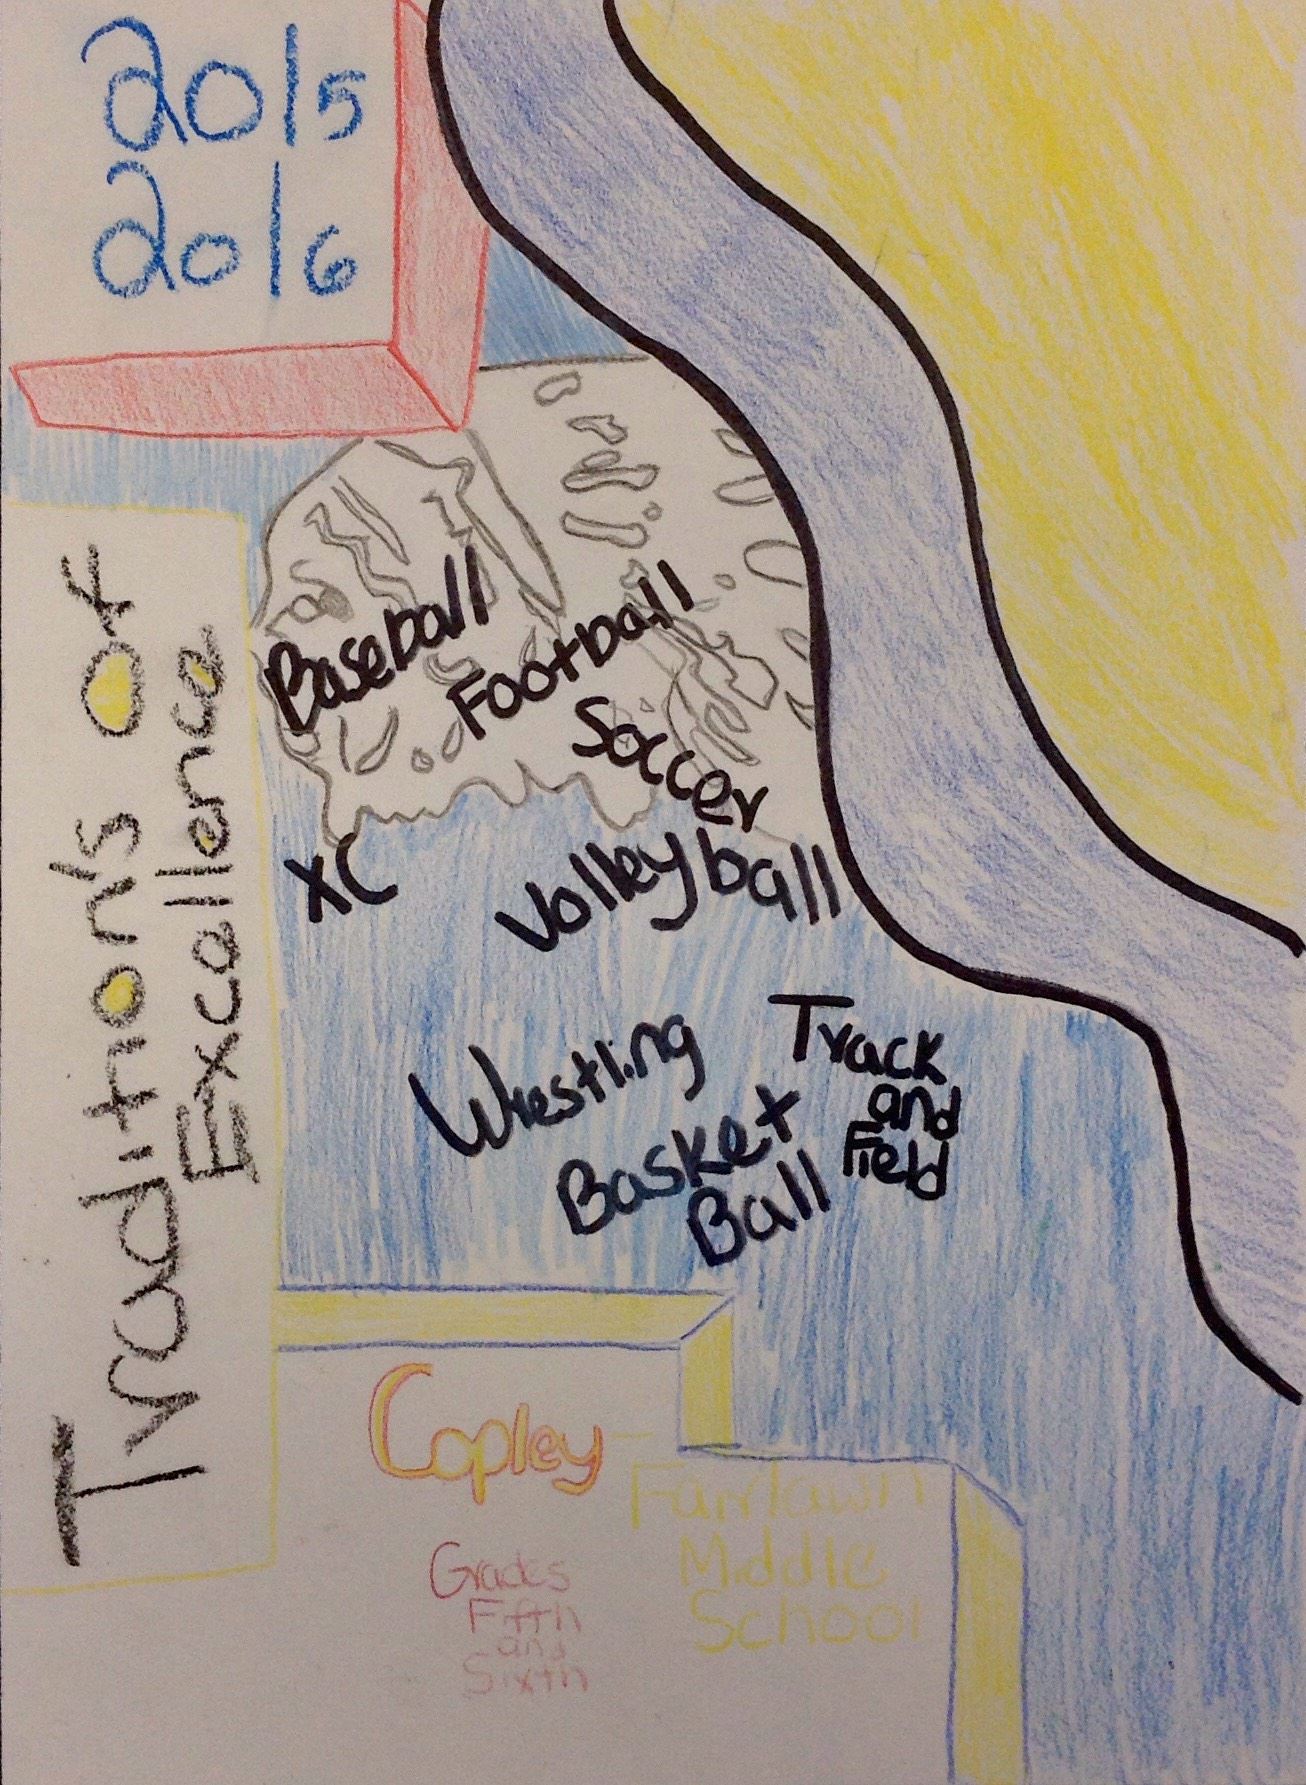 2015
2016
Tradition's of
Excellence
Baseball
Football
Soccer
XC
Volleyball
Wrestling
Track
and
Field
Basket
Ball
Copley
Fairlawn
Middle
School
Grades
Fifth
and
Sixth